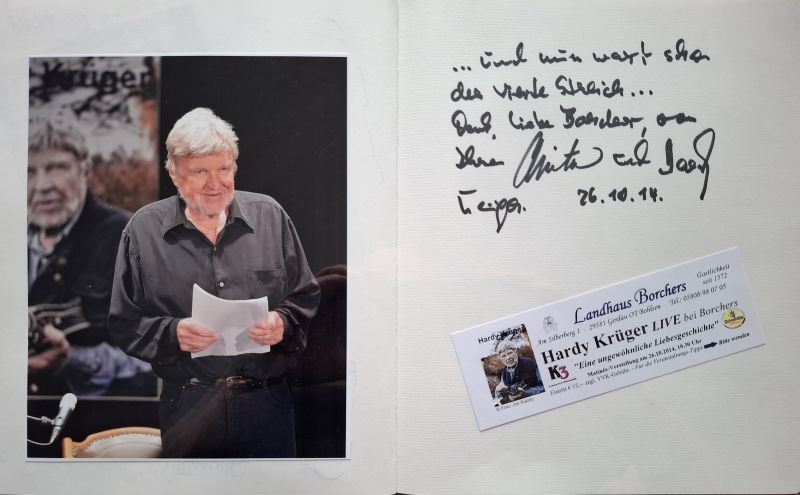 Krüger
... und nun wart schon
der vierte Streich...
Dank, liebe Borchers, von
Ihren Anita und Hardy
Krüger. 26.10.14.
Landhaus Borchers
Gastlichkeit
seit 1572
Am Silberberg 1 · 29581 Gerdau OT Bohlsen · Tel: 05808-98 07 05
Hardy Krüger
Hardy Krüger LIVE bei Borchers
K3
"Eine ungewöhnliche Liebesgeschichte"
Matinée-Vorstellung am 26.10.2014, 10.30 Uhr
Bitte wenden
Eintritt € 15,- zzgl. VVK-Gebühr. - Für die Veranstaltungs-Tipps
© Foto: